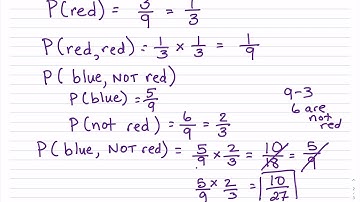 P(red) = 3/9 = 1/3
P(red, red) = 1/3 × 1/3 = 1/9
P( blue, NOT red)
P(blue) = 5/9
P(not red) = 6/9 = 2/3
9-3
6 are
not
red
P( blue, NOT red) = 5/9 × 2/3 = 10/18 = 5/9
5/9 × 2/3 = 10/27